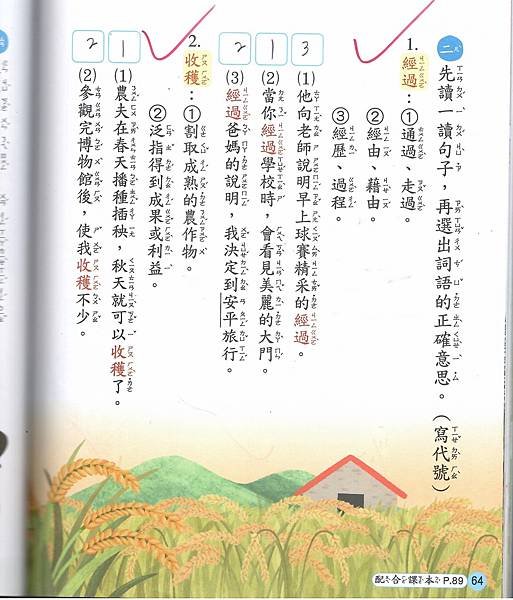 二 先讀一讀句子，再選出詞語的正確意思。（寫代號）
1. 經過：①通過、走過。
②經由、藉由。
③經歷、過程。
3 (1)他向老師說明早上球賽精采的經過。
1 (2)當你經過學校時，會看見美麗的大門。
2 (3)經過爸媽的說明，我決定到安平旅行。
2. 收穫：①割取成熟的農作物。
②泛指得到成果或利益。
1 (1)農夫在春天播種插秧，秋天就可以收穫了。
2 (2)參觀完博物館後，使我收穫不少。
配合課本P.89 64